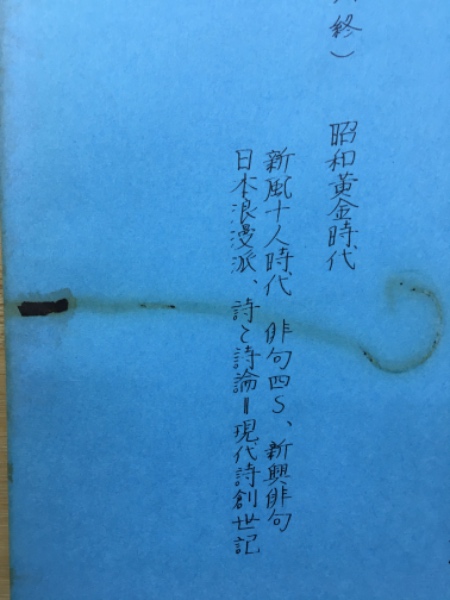 終）
昭和黄金時代
新風十人時代　俳句四S、新興俳句
日本浪漫派、詩と詩論＝現代詩創世記